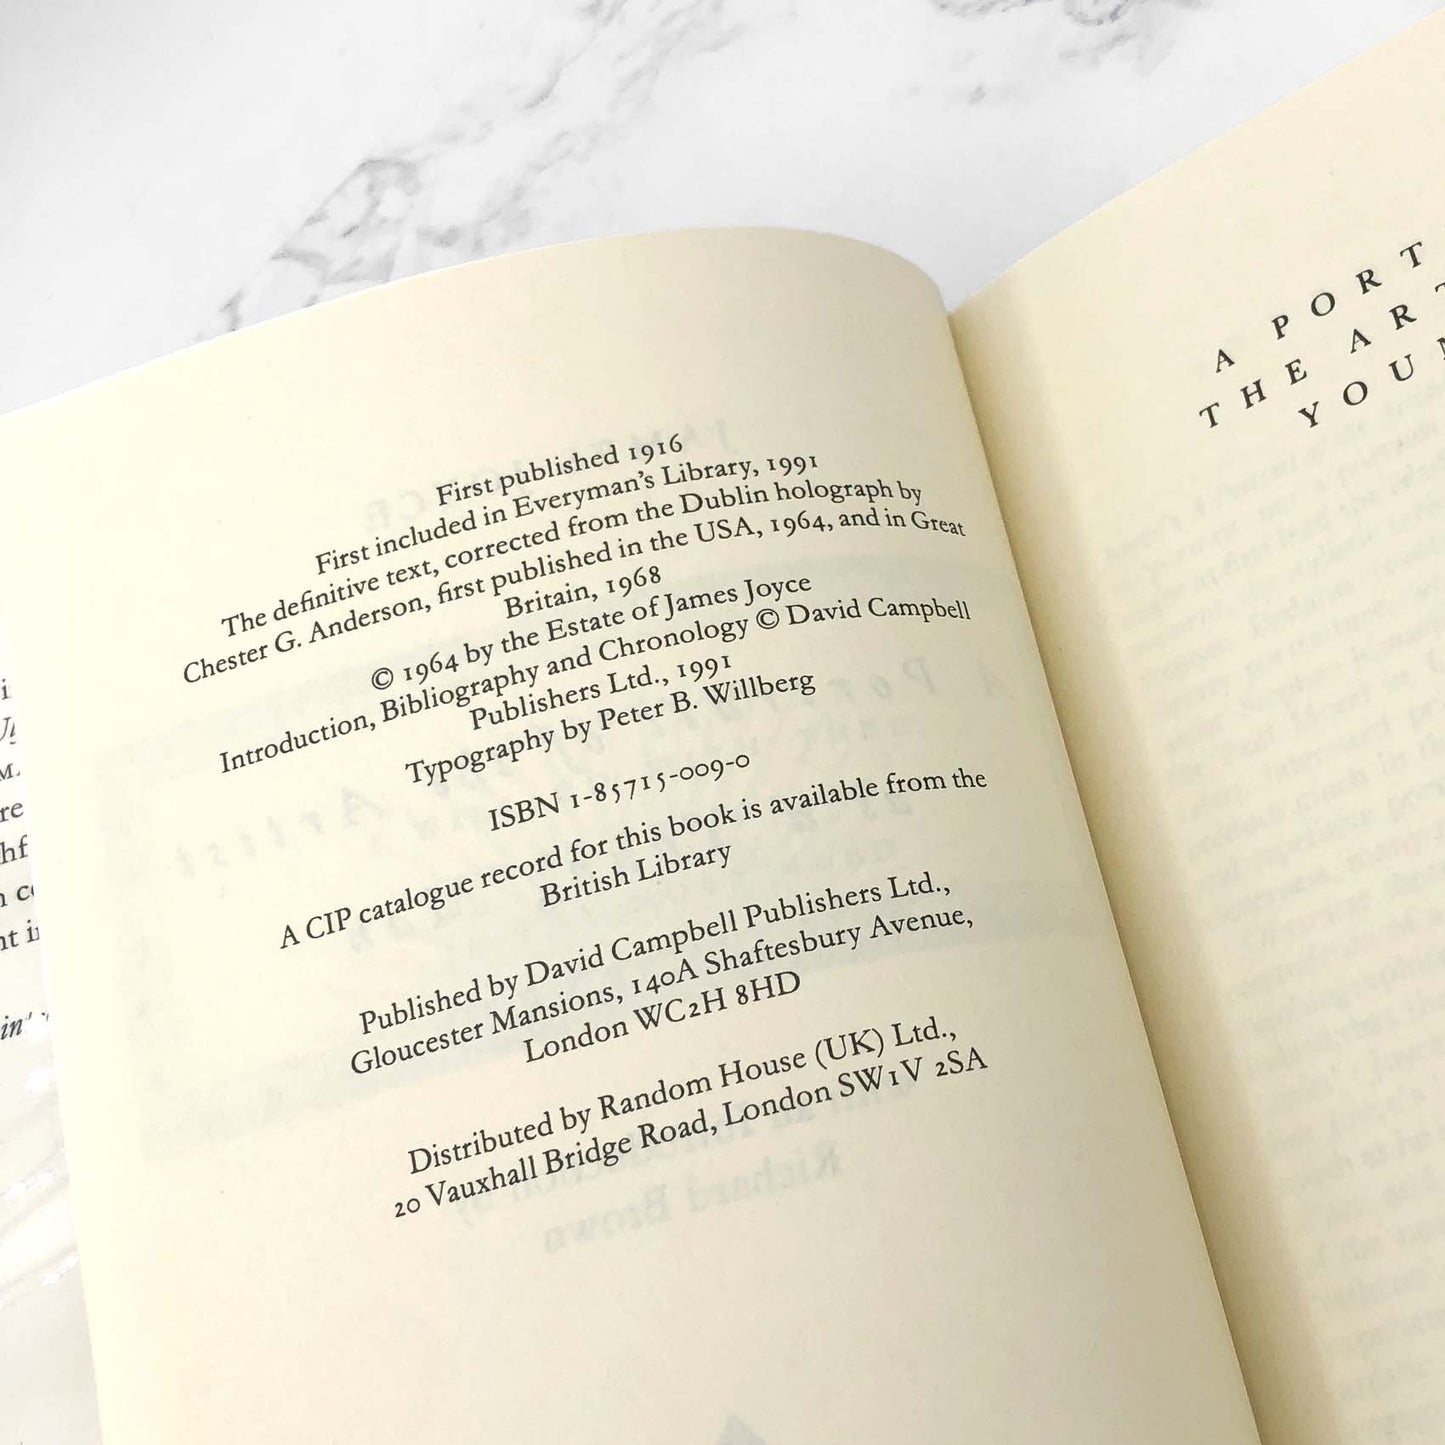 First published 1916
First included in Everyman's Library, 1991
The definitive text, corrected from the Dublin holograph by
Chester G. Anderson, first published in the USA, 1964, and in Great
Britain, 1968
© 1964 by the Estate of James Joyce
Introduction, Bibliography and Chronology © David Campbell
Publishers Ltd., 1991
Typography by Peter B. Willberg
ISBN 1-85715-009-0
A CIP catalogue record for this book is available from the
British Library
Published by David Campbell Publishers Ltd.,
Gloucester Mansions, 140A Shaftesbury Avenue,
London WC2H 8HD
Distributed by Random House (UK) Ltd.,
20 Vauxhall Bridge Road, London SW1V 2SA
A PORT
THE ART
YOUN